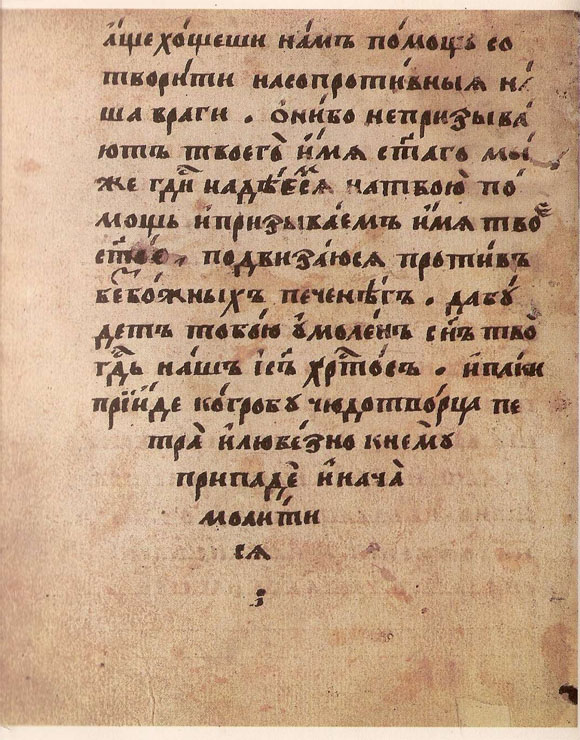 а́ще хо́щеши на́мъ по́мощь со
твори́ти насопроти́вныя на́
ша враги . Ѻ҆ни́бо непризыва́
ютъ твоего̀ и́мя ст҃аго мы́
же гд҇и наде́емся натвою̀ по́
мощь и҆призыва́емъ и́мя твое
ст҃ое , подвиза́юся проти́въ
безбо́жныхъ печенѣ́гъ . дабу́
детъ тобо́ю у҆моле́нъ сн҃ъ тво
гд҇ь на́шъ і҆с҃ъ хр҇то́съ . и҆па́ки
прїи́де ко́гробу чюдотво́рца пе
тра̀ и҆любе́зно кнему̀
припадѐ и҆нача̀
моли́ти
ся